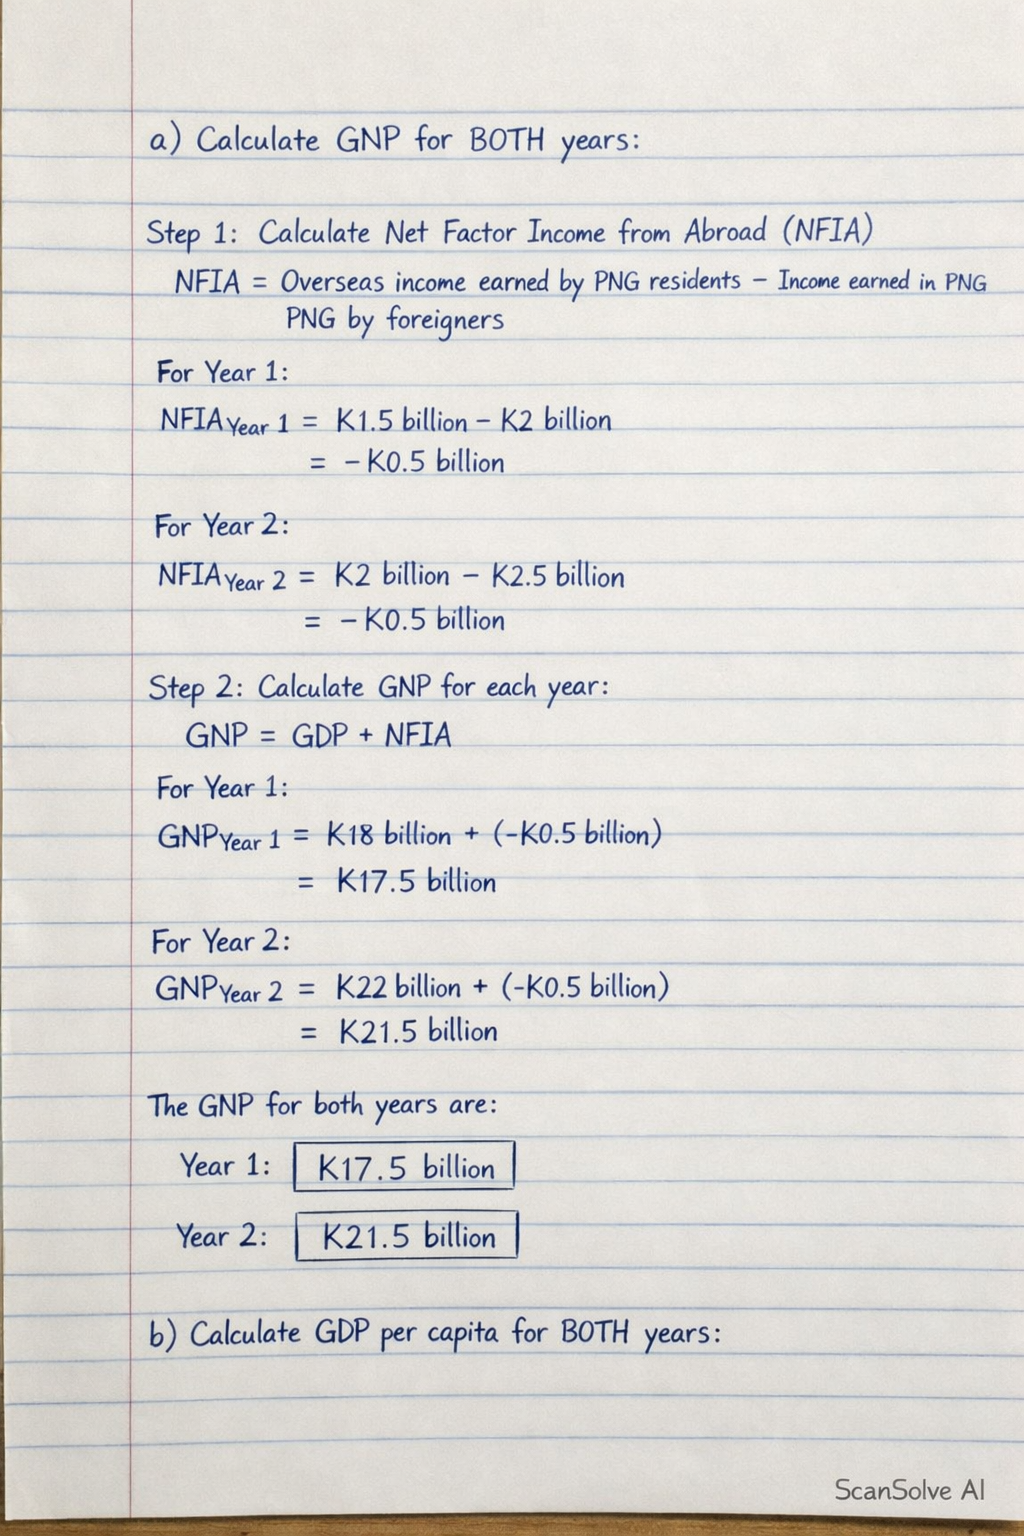 a) Calculate GNP for BOTH years:
Step 1: Calculate Net Factor Income from Abroad (NFIA)
NFIA = Overseas income earned by PNG residents – Income earned in PNG
PNG by foreigners
For Year 1:
NFIA Year 1 = K1.5 billion – K2 billion
= – K0.5 billion
For Year 2:
NFIA Year 2 = K2 billion – K2.5 billion
= – K0.5 billion
Step 2: Calculate GNP for each year:
GNP = GDP + NFIA
For Year 1:
GNP Year 1 = K18 billion + (-K0.5 billion)
= K17.5 billion
For Year 2:
GNP Year 2 = K22 billion + (-K0.5 billion)
= K21.5 billion
The GNP for both years are:
Year 1: K17.5 billion
Year 2: K21.5 billion
b) Calculate GDP per capita for BOTH years:
ScanSolve AI